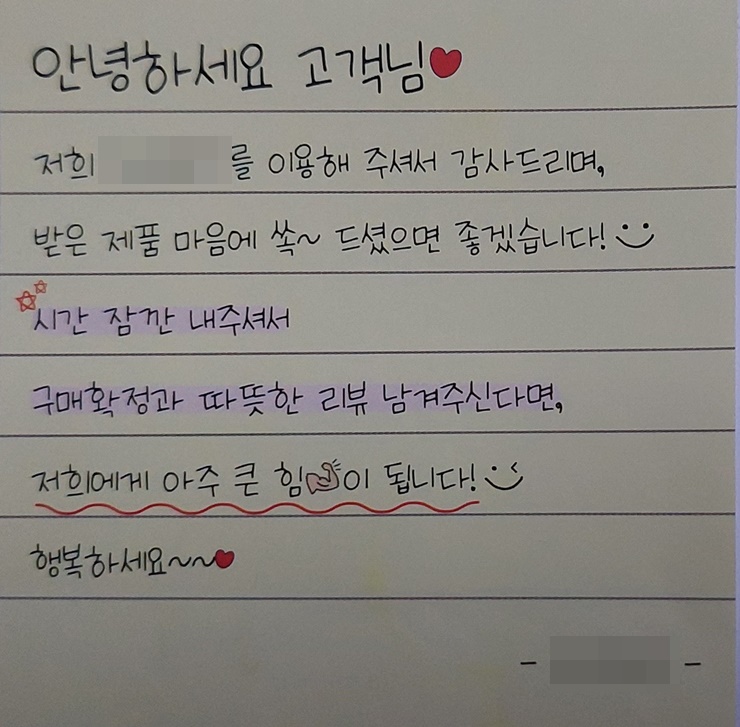 안녕하세요 고객님
저희 를 이용해 주셔서 감사드리며,
받은 제품 마음에 쏙~ 드셨으면 좋겠습니다!
시간 잠깐 내주셔서
구매확정과 따뜻한 리뷰 남겨주신다면,
저희에게 아주 큰 힘이 됩니다!
행복하세요~~
- -